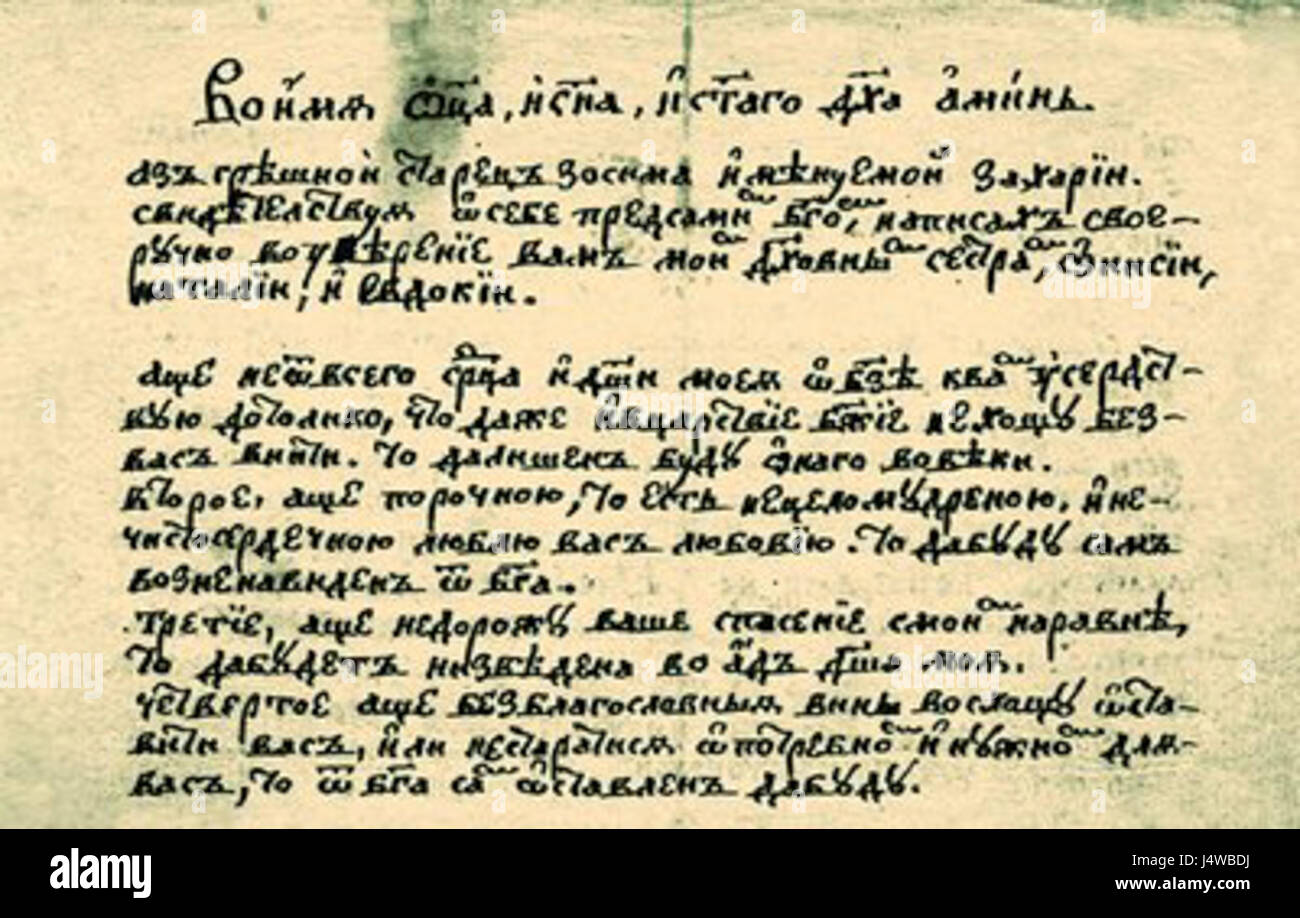 Во и҆́мѧ ѻ҆ц҃а, и҆ сн҃а, и҆ ст҃аго дх҃а а҆ми́нь
азъ грѣшной старецъ зосима и҆мѣнуемой захарїи.
свидѣтелствуѧ ѡ҆ себе предсамиⷨ бг҃оⷨ, написахъ свое-
ручно во увѣренїе вамъ моиⷨ дх҃овныⷨ сестраⷨ,
наталїи, и҆ евдокїи.
аще не ѿ всего срⷣца и҆ дш҃и моеѧ ѡ҆ бз҃ѣ к ваⷨ усердст-
вую до толико, что даже и҆ в царствїе бж҃їе не хощу без-
васъ внити. то да лишенъ буду ѻ҆наго вовѣки.
второе, аще порочною, то есть нецеломудреною, и҆ не-
чистосердечною люблю васъ любовїю. то да буду самъ
возненавиденъ ѿ бг҃а.
третїе, аще недорожу ваше спасенїе с моиⷨ наравнѣ,
то да будетъ низвѣдена во а҆дъ дш҃а моѧ.
четвертое аще без благословныѧ вины восхощу ѡ҆ста-
вити васъ, и҆ли не старатисѧ ѡ҆ потребноⷨ и҆ нужноⷨ длѧ-
васъ, то ѿ бг҃а саⷨ ѡ҆ставленъ да буду.
alamy
alamy stock photo
J4WBDJ
www.alamy.com